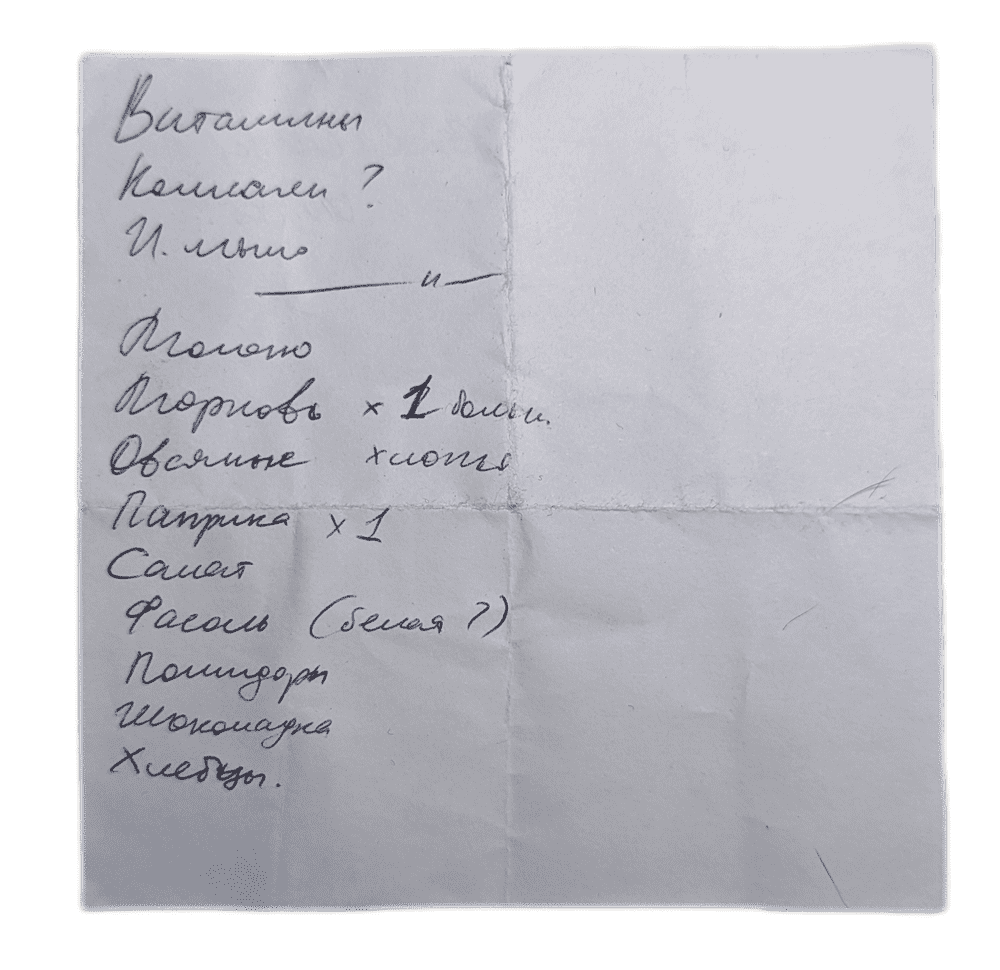 Витамины
Коллаген ?
И. мыло
— " —
Молоко
Морковь х 1 больш.
Овсяные хлопья
Паприка х 1
Салат
Фасоль (белая ?)
Помидоры
Шоколадка
Хлебцы.